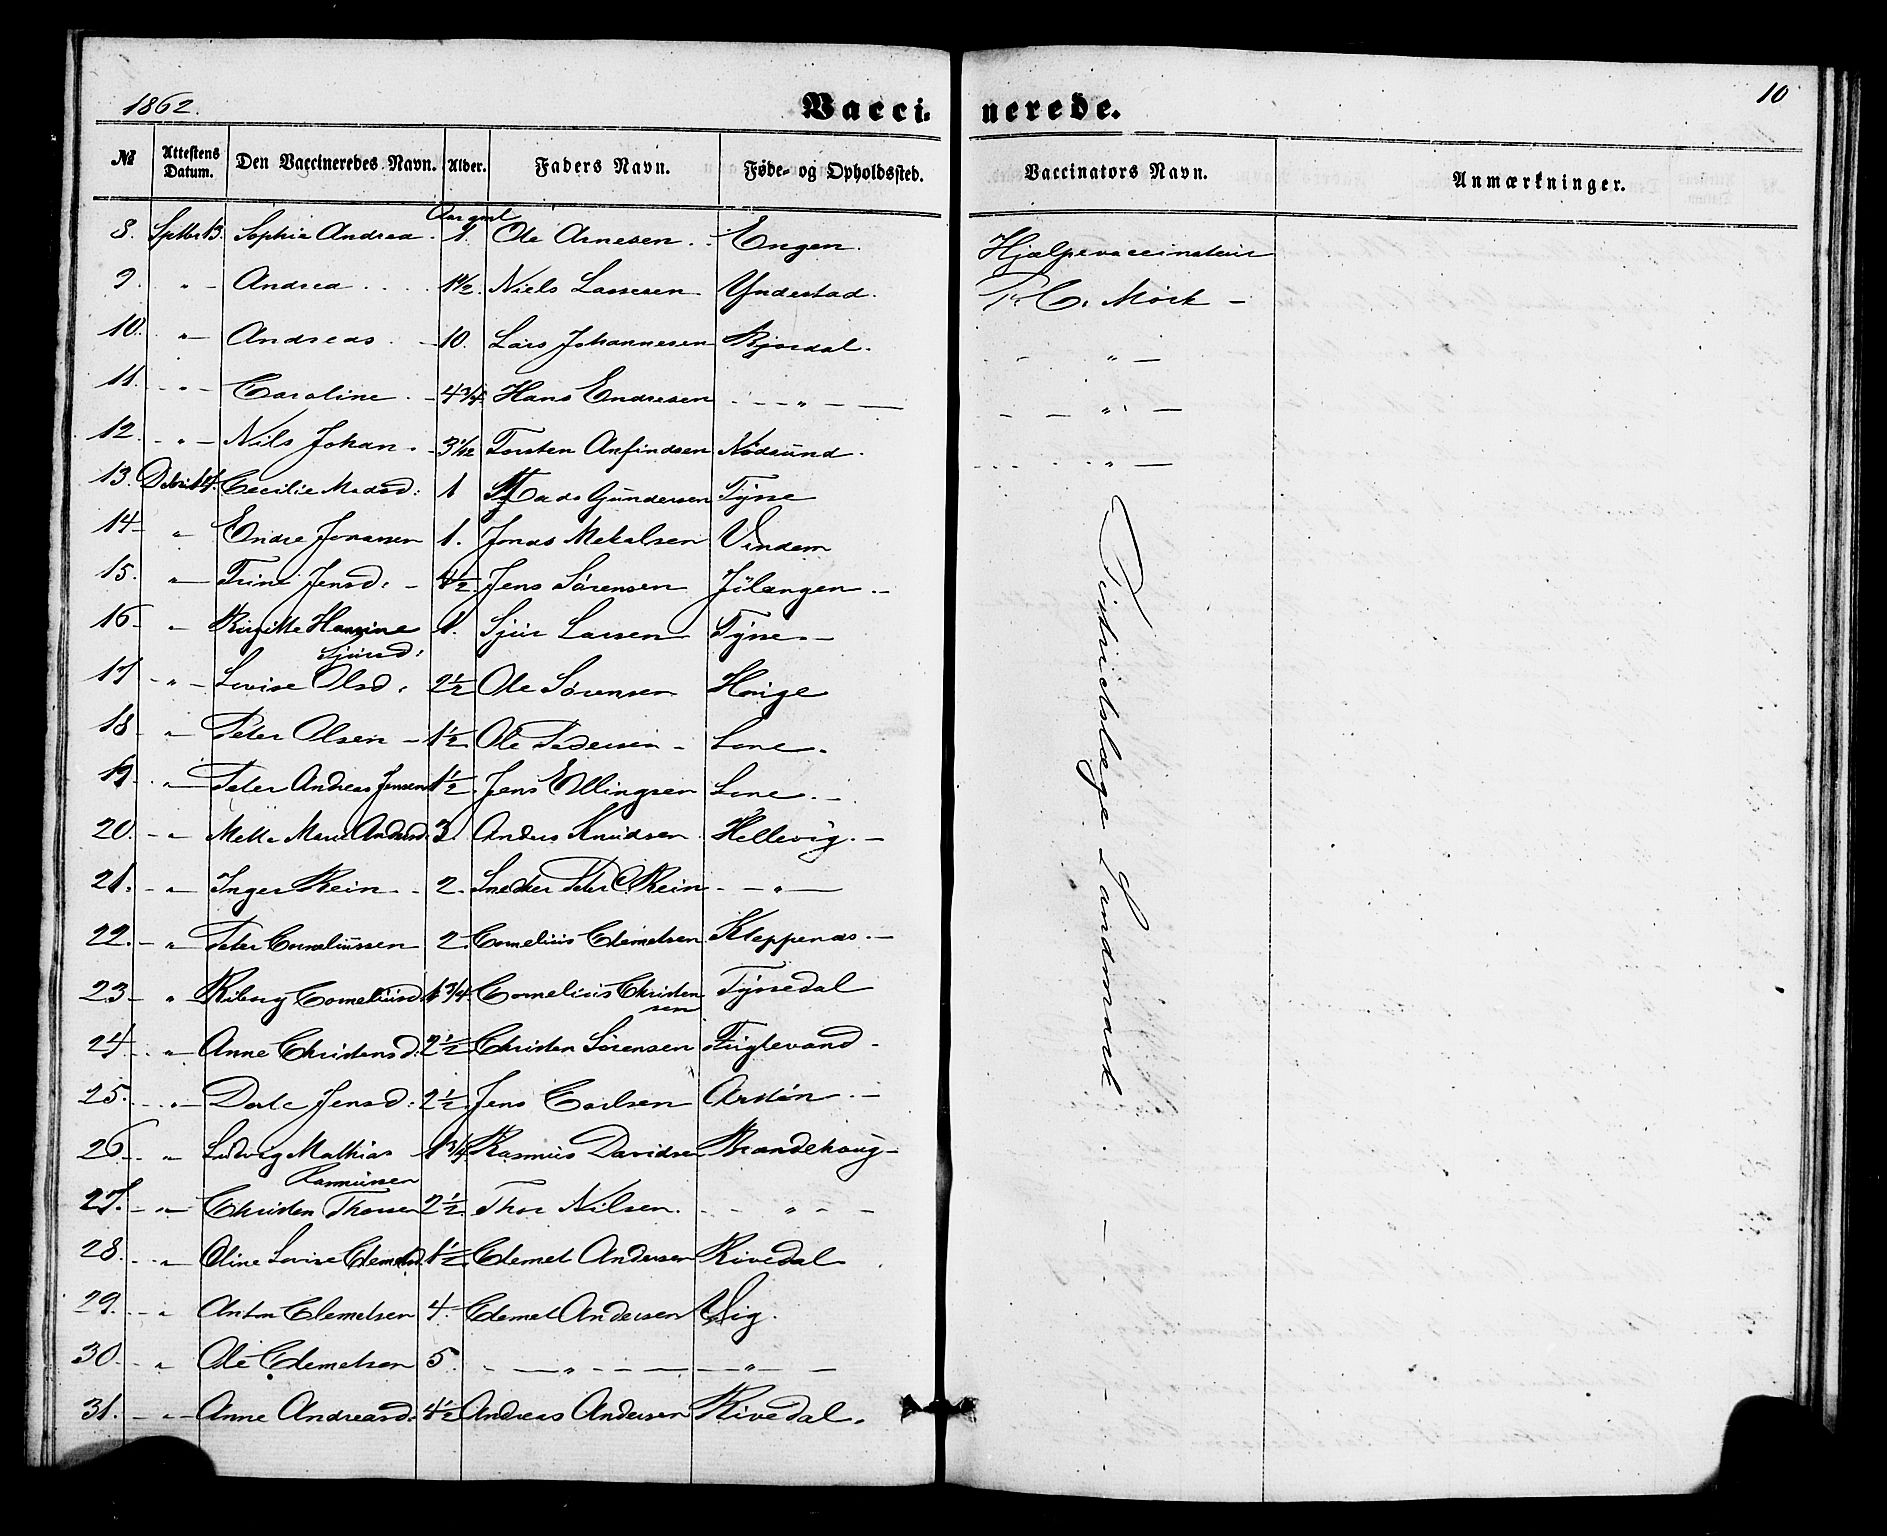 1862.
Vaccinerede.
10
№ Attestens Datum. Den Vaccineredes Navn. Alder. Faders Navn. Føde- og Opholdssted. Vaccinators Navn. Anmærkninger.
8. Septbr 13. Sophie Andrea. Aar gml 1. Ole Arnesen. Engen. Hjælpevaccinateur
9. " Andrea 1½. Niels Lassesen. Yndestad. C. Mørk -
10. " - Andreas. 10. Lars Johannesen Bjordal. - " -
11. - " - Caroline. - 4¾ Hans Endresen - " - - " -
12. - " - Nils Johan. - 3 1/12 Torsten Anfindsen Nødsund. - " -
13. Debr 14. Cecilie Madsd: 1 Mads Gundersen Tysse Districtslæge Landmark.
14 - " Endre Jonassen 1. Jonas Mekalsen Vindem
15. " Trine Jensd: - 1½. Jens Sørensen Jølangen. -
16 - " Birgitte Hansine Sjursd: 1. Sjur Larsen Tysse. -
17 - " - Lovise Olsd: 2½ Ole Sørensen Horige
18 - " Peter Olsen - 1½. Ole Pedersen - Lone.
19 - " Peter Andreas Jensen 1½. Jens Ellingsen Lone. -
20. - " Mette Marie Andersd. 3. Anders Knudsen Hellevig. -
21. - " Inger Rein - - 2. Snedker Peter Rein - " -
22. - " Peter Corneliussen 2. Cornelius Clemetsen Kleppenas. -
23 - " Riborg Corneliusd. 1¾ Cornelius Christensen Tyssedal
24 - " Anne Christensd. 2½ Christen Sørensen Fuglevand -
25. - " Dorte Jensd: 2½. Jens Carlsen Arstøn. -
26 - " Ludvig Mathias Rasmussen 1¾ Rasmus Davidsen Brandehoug -
27. - " - Christen Thorsen 2½. Thor Nilsen. - " -
28. - " Oline Lovise Clemetsd. 1½ Clemet Andersen Rivedal
29. - " Anton Clemetsen 4. Clemet Andersen Vig.
30 - " Ole Clemetsen 5. - " - - " -
31. - " - Anne Andreasd. 4½ Andreas Andersen Rivedal.